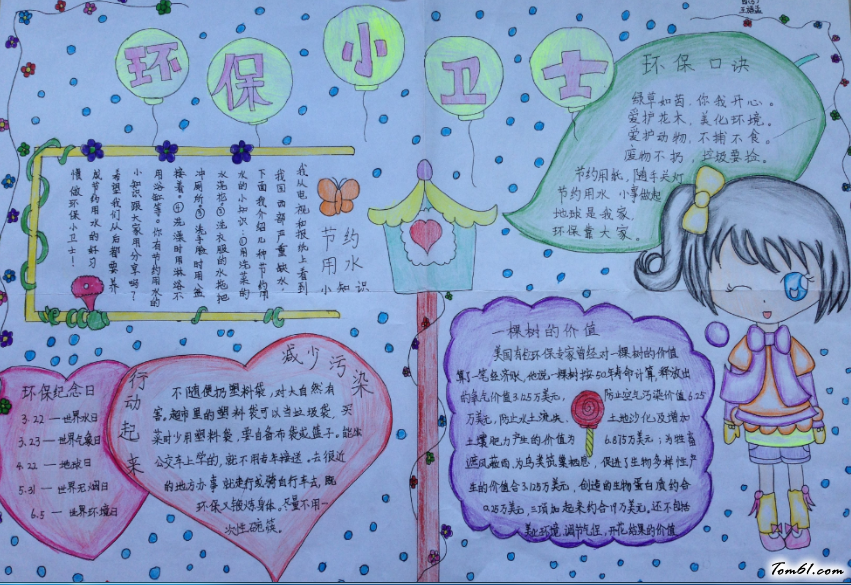 环保小卫士
环保口诀
绿草如茵,你我开心。
爱护花木,美化环境。
爱护动物,不捕不食。
废物不扔,垃圾要捡。
节约用能,随手关灯
节约用水 小事做起
地球是我家
环保靠大家。
节约
用水
小知识
我从电视和报纸上看到
我国西部严重缺水
下面我介绍几种节约用
水的小知识:①用洗菜的
水浇花②洗衣服的水拖把
冲厕所③洗手脸时用盆
接着。④洗澡时用淋浴不
用浴缸等。你有节约用水的
小知识跟大家用分享吗?
希望我们从后都要养
成节约用水的好习
惯做环保小卫士!
环保纪念日
3.22—世界水日
3.23—世界气象日
4.22—地球日
5.31—世界无烟日
6.5—世界环境日
行动起来
减少污染
不随便扔塑料袋,对大自然有
害,超市里的塑料袋可以当垃圾袋,买
菜时少用塑料袋,要自备布袋或篮子。能坐
公交车上学的,就不用者车接送。去很近
的地方办事就走行或骑自行车去,既
环保又锻炼身体。尽量不用一
次性碗筷。
一棵树的价值
美国有位环保专家曾经对一棵树的价值
算了一笔经济账,他说,一棵树按50年寿命计算,释放出
的氧气价值3.125万美元, 防止空气污染价值6.25
万美元,防止水土流失、 土地沙化及增加
土壤肥力产生的价值为 6.875万美元;为牲畜
遮风蔽雨,为鸟类筑巢栖息,促进了生物多样性产
生的价值合3.125万美元,创造的生物蛋白质约合
0.25万美元,三项加起来约合19万美元。还不包括
美化环境,调节气候,开花结果的价值
Tom61.com